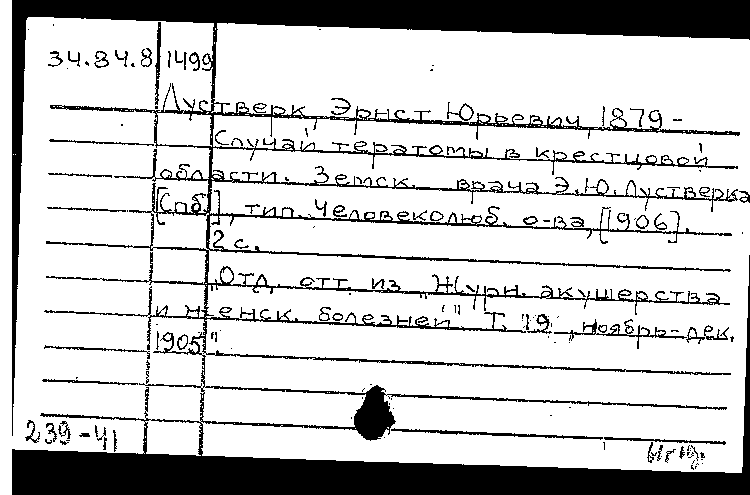 34.84.8 1499
Лустверк, Эрнст Юрьевич, 1879-
Случай тератомы в крестцовой
области. Земск. врача Э.Ю. Лустверка
[Спб], тип. Человеколюб. о-ва, [1906].
2 с.
"Отд. отт. из "Журн. акушерства
и женск. болезней" Т. 19, ноябрь-дек.
1905".
239-41